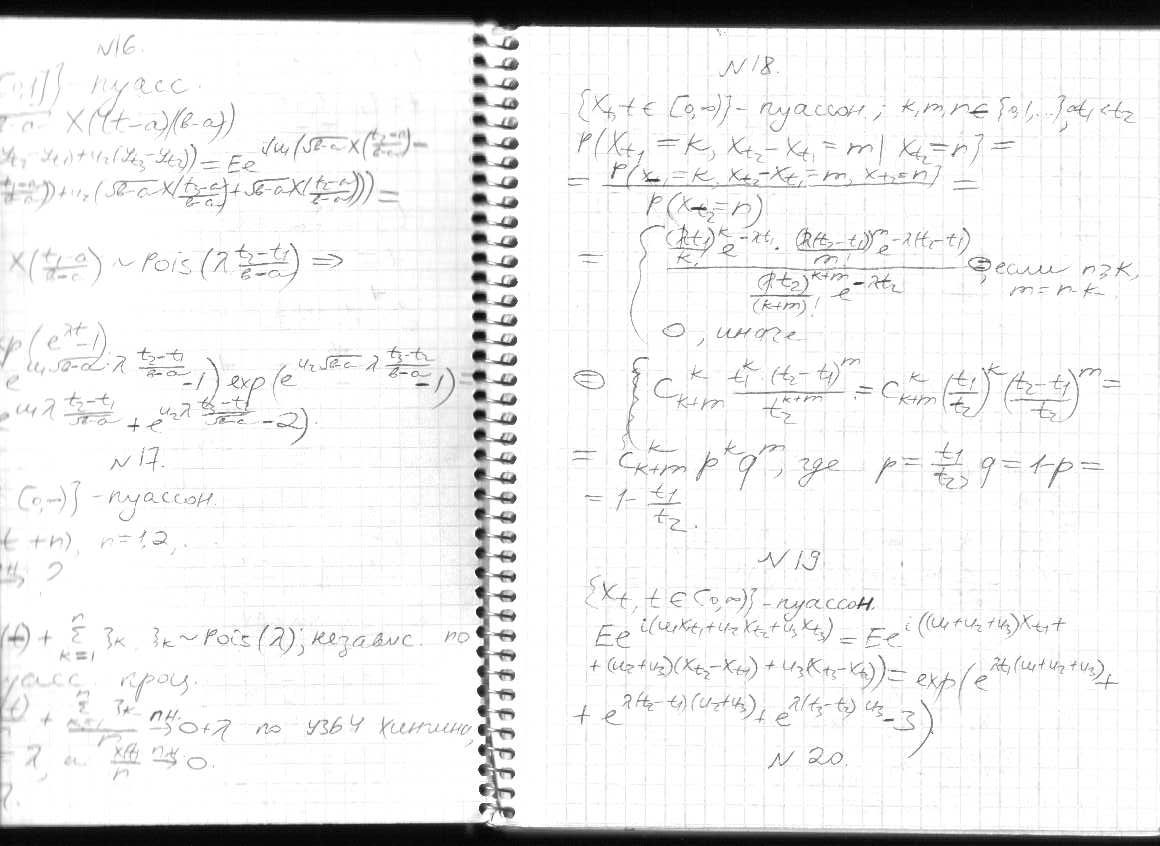 N16.
0,1]} - пуасс.
X((t-a)(b-a))
y_{t_2}-y_{t_1})+u_2(y_{t_3}-y_{t_2})) = Ee^{i(u_1(√(b-a) X((t_2-a)/(b-a)) -
)) + u_2(√(b-a) X((t_3-a)/(b-a)) + √(b-a) X((t_2-a)/(b-a)))) =
X((t_1-a)/(b-a)) ~ Pois(λ (t_2-t_1)/(b-a)) ⇒
p(e^{λt}-1)
e^{u_1√(b-a) λ (t_2-t_1)/(b-a)} -1) exp(e^{u_2√(b-a) λ (t_3-t_2)/(b-a)} -1) =
e^{u_1 λ (t_2-t_1)/√(b-a)} + e^{u_2 λ (t_3-t_1)/√(b-a)} -2).
N17.
[0,∞)} - пуассон.
t+n), n=1,2,..
?
(t) + Σ_{k=1}^{n} ξ_k, ξ_k ~ Pois(λ); независ. по
уасс. проц.
+ (Σ_{k=1}^{n} ξ_k)/n →^{пн.} 0+λ по УЗБЧ Хинчина,
= λ, а X(t)/n →^{пн} 0.
N18.
{X_t, t ∈ [0,∞)} - пуассон.; k,m,n ∈ {0,1,...}, 0<t_1<t_2
P(X_{t_1} = k, X_{t_2} - X_{t_1} = m | X_{t_2} = n) =
= P(X_{t_1} = k, X_{t_2} - X_{t_1} = m, X_{t_2} = n) / P(X_{t_2} = n) =
= { ((λt_1)^k/k! e^{-λt_1} · (λ(t_2-t_1))^m/m! e^{-λ(t_2-t_1)}) / ((λt_2)^{k+m}/(k+m)! e^{-λt_2}) ⊜, если n≥k, m=n-k
0, иначе
⊜ { C_{k+m}^k (t_1^k · (t_2-t_1)^m)/t_2^{k+m} = C_{k+m}^k (t_1/t_2)^k ((t_2-t_1)/t_2)^m =
= C_{k+m}^k p^k q^m, где p = t_1/t_2, q = 1-p =
= 1 - t_1/t_2.
N 19
{X_t, t ∈ [0,∞)} - пуассон.
Ee^{i(u_1X_{t_1}+u_2X_{t_2}+u_3X_{t_3})} = Ee^{i((u_1+u_2+u_3)X_{t_1}+
+(u_2+u_3)(X_{t_2}-X_{t_1})+u_3(X_{t_3}-X_{t_2}))} = exp(e^{λt_1(u_1+u_2+u_3)} +
+ e^{λ(t_2-t_1)(u_2+u_3)} + e^{λ(t_3-t_2)u_3} -3).
N 20.